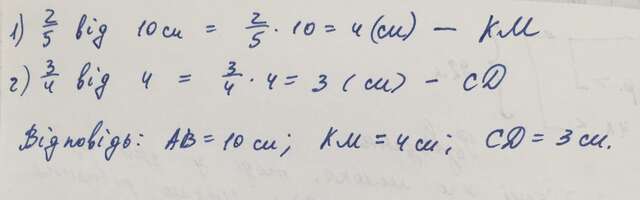 1) 2/5 від 10 см = 2/5 · 10 = 4 (см) — КМ
2) 3/4 від 4 = 3/4 · 4 = 3 (см) - СD
Відповідь: АВ = 10 см; КМ = 4 см; СD = 3 см.